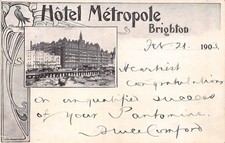 Hôtel Métropole
Brighton
Feb 21. 1903.
Heartiest
Congratulations
on unqualified success
of your Pantomime.